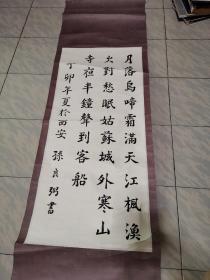 月落烏啼霜滿天江楓漁
火對愁眠姑蘇城外寒山
寺夜半鐘聲到客船
丁卯年夏於西安 孫良弼書